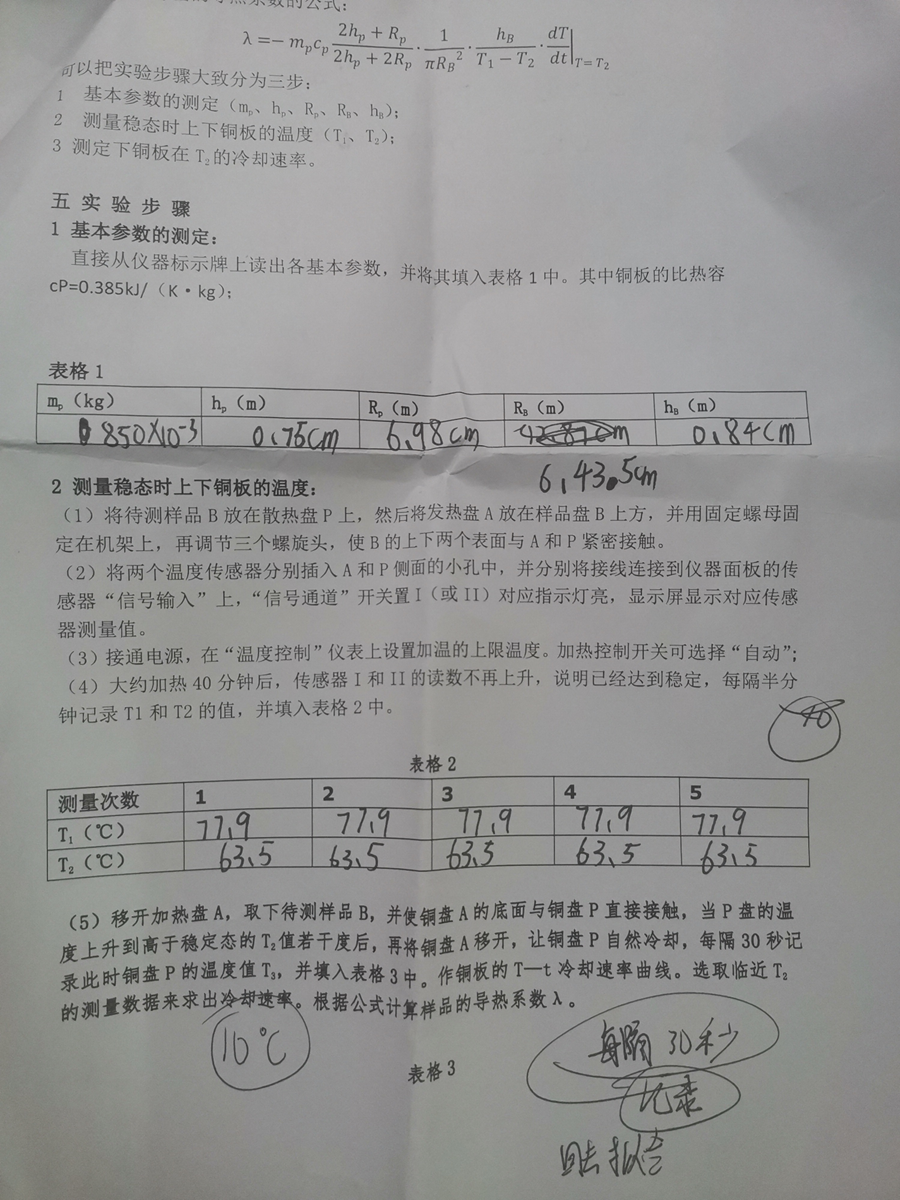 的导热系数的公式：
λ =− m_p c_p (2h_p + R_p)/(2h_p + 2R_p) · 1/(πR_B²) · h_B/(T₁ − T₂) · dT/dt|_{T=T₂}
可以把实验步骤大致分为三步：
1 基本参数的测定（m_p、h_p、R_p、R_B、h_B）；
2 测量稳态时上下铜板的温度（T₁、T₂）；
3 测定下铜板在 T₂的冷却速率。
五 实 验 步 骤
1 基本参数的测定：
直接从仪器标示牌上读出各基本参数，并将其填入表格 1 中。其中铜板的比热容
cP=0.385kJ/（K·kg）；
表格 1
m_p（kg） h_p（m） R_p（m） R_B（m） h_B（m）
850×10⁻³ 0.76cm 6.98cm 0.84cm
6.43.5cm
2 测量稳态时上下铜板的温度：
（1）将待测样品 B 放在散热盘 P 上，然后将发热盘 A 放在样品盘 B 上方，并用固定螺母固
定在机架上，再调节三个螺旋头，使 B 的上下两个表面与 A 和 P 紧密接触。
（2）将两个温度传感器分别插入 A 和 P 侧面的小孔中，并分别将接线连接到仪器面板的传
感器“信号输入”上，“信号通道”开关置 I（或 II）对应指示灯亮，显示屏显示对应传感
器测量值。
（3）接通电源，在“温度控制”仪表上设置加温的上限温度。加热控制开关可选择“自动”；
（4）大约加热 40 分钟后，传感器 I 和 II 的读数不再上升，说明已经达到稳定，每隔半分
钟记录 T1 和 T2 的值，并填入表格 2 中。
表格 2
测量次数 1 2 3 4 5
T₁（℃） 77.9 77.9 77.9 77.9 77.9
T₂（℃） 63.5 63.5 63.5 63.5 63.5
（5）移开加热盘 A，取下待测样品 B，并使铜盘 A 的底面与铜盘 P 直接接触，当 P 盘的温
度上升到高于稳定态的 T₂值若干度后，再将铜盘 A 移开，让铜盘 P 自然冷却，每隔 30 秒记
录此时铜盘 P 的温度值 T₃，并填入表格 3 中。作铜板的 T—t 冷却速率曲线。选取临近 T₂
的测量数据来求出冷却速率。根据公式计算样品的导热系数 λ。
10℃
每隔 30秒
表格 3
记录
回去拟合